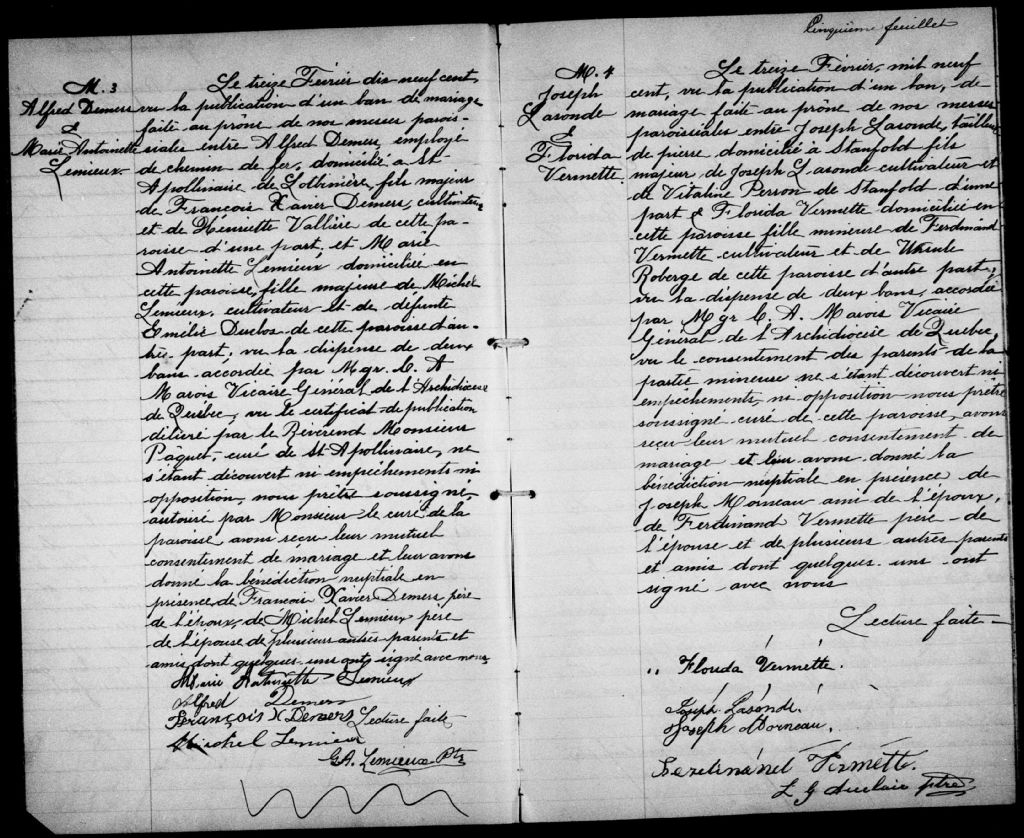 M. 3
Alfred Demers
&
Marie Antoinette
Lemieux.
Le treize Février dix neuf cent
vu la publication d'un ban de mariage
faite au prône de nos messes parois-
siales entre Alfred Demers, employé
de chemin de fer, domicilié a St-
Apolinaire de Lotbinière, fils majeur
de François Xavier Demers, cultivateur
et de Henriette Vallière de cette pa-
roisse d'une part, et Marie
Antoinette Lemieux domiciliée en
cette paroisse, fille majeure de Michel
Lemieux, cultivateur et de défunte
Emélie Duclos de cette paroisse d'au-
tre part; vu la dispense de deux
bans accordée par Mgr. C. A
Marois Vicaire Général de l'Archidiocèse
de Québec, vu le certificat de publication
délivré par le Révérend Monsieur
Paquet, curé de St Apollinaire, ne
s'étant découvert ni empêchements ni
opposition, nous prêtre soussigné,
autorisé par Monsieur le curé de la
paroisse avons reçu leur mutuel
consentement de mariage et leur avons
donné la bénédiction nuptiale en
présence, de François Xavier Demers père
de l'époux, de Michel Lemieux père
de l'épouse de plusieurs autres parents et
amis dont quelques-uns ont signé avec nous
Marie Antoinette Lemieux
Alfred Demers
François X Demers Lecture faite
Michel Lemieux
G.A. Lemieux Ptre
Cinquième feuillet
M. 4
Joseph
Lasonde
&
Florida
Vermette
Le treize Février, mil neuf
cent, vu la publication d'un ban, de-
mariage faite au prône de nos messes
paroissiales entre Joseph Lasonde, tailleur
de pierre domicilié à Stanfold fils
majeur de Joseph Lasonde cultivateur et
de Vitaline Perron de Stanfold d'une
part & Florida Vermette domiciliée en
cette paroisse fille mineure de Ferdinand
Vermette cultivateur et de Ursule
Roberge de cette paroisse d'autre part,
vu la dispense de deux bans, accordée
par Mgr C. A. Marois Vicaire
Général de l'Archidiocèse de Québec,
vu le consentement des parents de la
partie mineure ne s'étant découvert ni
empêchements, ni opposition nous prêtre
soussigné curé de cette paroisse, avons
reçu leur mutuel consentement de
mariage et leur avons donné la
bénédiction nuptiale en présence de
Joseph Morneau ami de l'époux,
de Ferdinand Vermette père de
l'épouse et de plusieurs autres parents
et amis dont quelques uns ont
signé avec nous
Lecture faite
" Florida Vermette.
Joseph Lasonde.
Joseph Morneau.
Ferdinand Vermette.
L G Auclair ptre